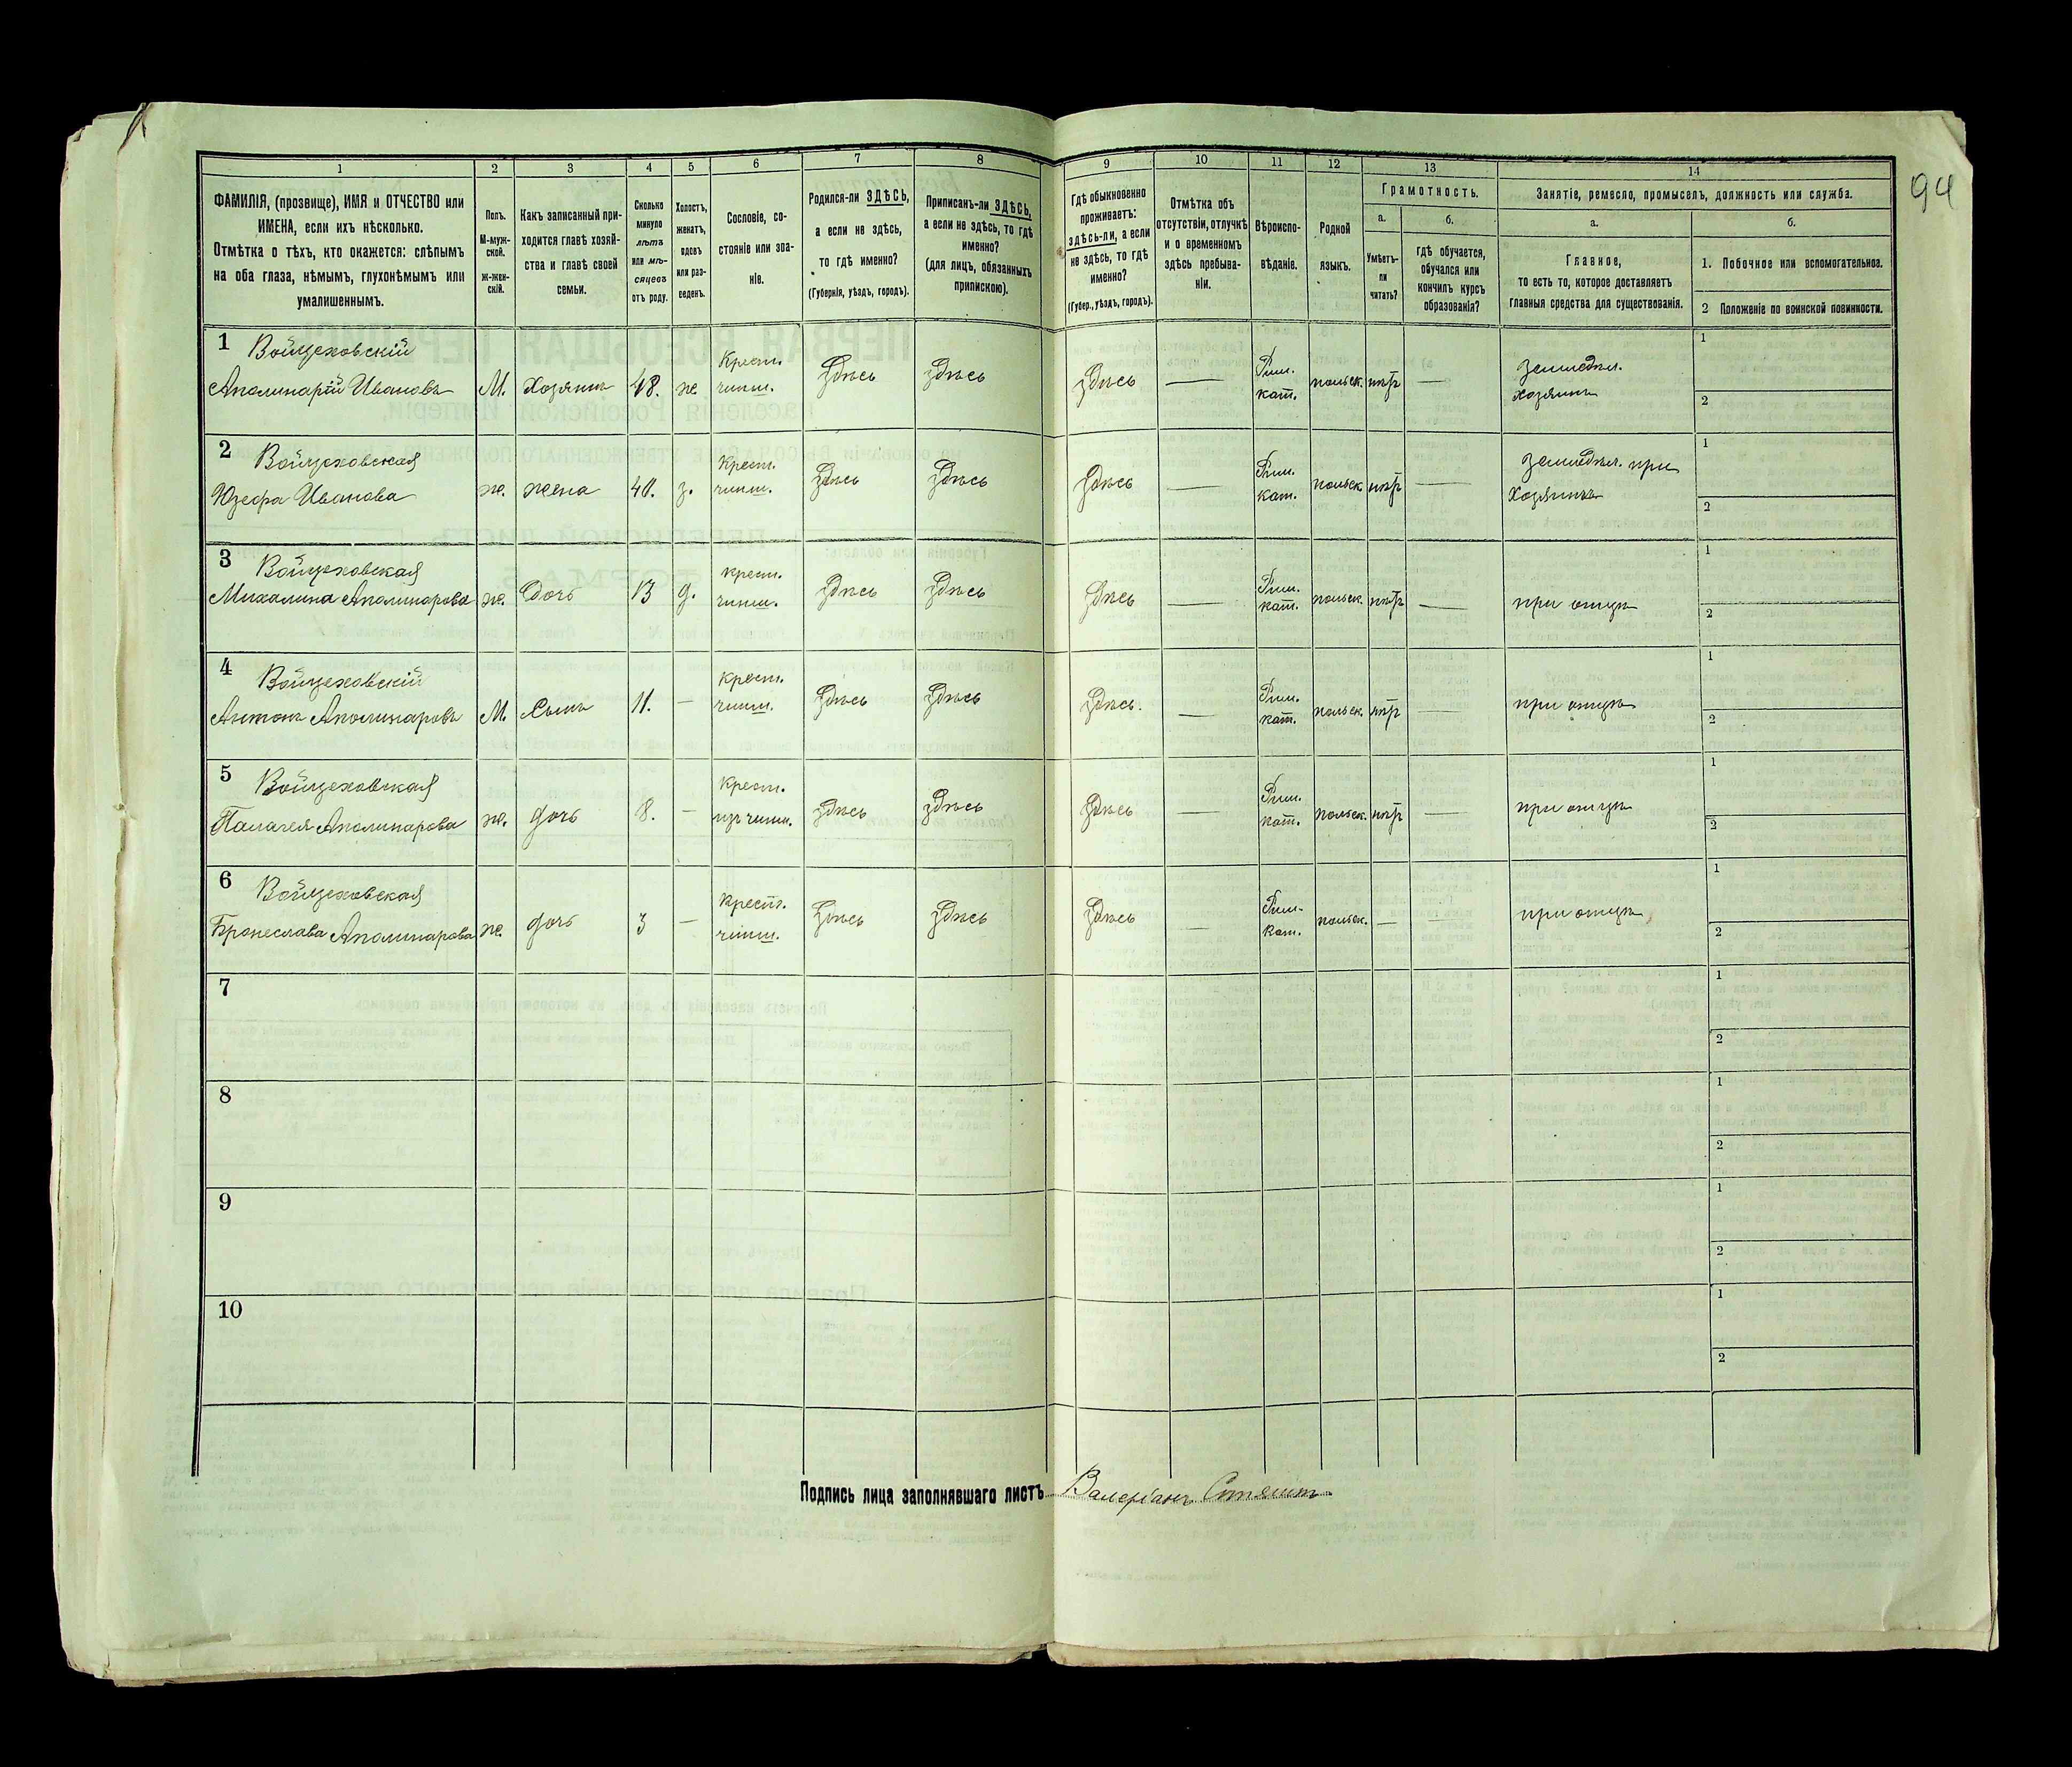 94
1 2 3 4 5 6 7 8 9 10 11 12 13 14
ФАМИЛІЯ, (прозвище), ИМЯ и ОТЧЕСТВО или
ИМЕНА, если ихъ нѣсколько.
Отмѣтка о тѣхъ, кто окажется: слѣпымъ
на оба глаза, нѣмымъ, глухонѣмымъ или
умалишеннымъ.
Полъ.
М-муж-
ской.
ж-жен-
скій.
Какъ записанный при-
ходится главѣ хозяй-
ства и главѣ своей
семьи.
Сколько
минуло
лѣтъ
или мѣ-
сяцевъ
отъ роду.
Холостъ,
женатъ,
вдовъ
или раз-
веденъ.
Сословіе, со-
стояніе или зва-
ніе.
Родился-ли ЗДѢСЬ,
а если не здѣсь,
то гдѣ именно?
(Губернія, уѣздъ, городъ).
Приписанъ-ли ЗДѢСЬ,
а если не здѣсь, то гдѣ
именно?
(для лицъ, обязанныхъ
припискою).
Гдѣ обыкновенно
проживаетъ:
здѣсь-ли, а если
не здѣсь, то гдѣ
именно?
(Губер., уѣздъ, городъ).
Отмѣтка объ
отсутствіи, отлучкѣ
и о временномъ
здѣсь пребыва-
ніи.
Вѣроиспо-
вѣданіе.
Родной
языкъ.
Грамотность.
а.
Умѣетъ-
ли
читать?
б.
гдѣ обучается,
обучался или
кончилъ курсъ
образованія?
Занятіе, ремесло, промыселъ, должность или служба.
а.
Главное,
то есть то, которое доставляетъ
главныя средства для существованія.
б.
1. Побочное или вспомогательное.
2 Положеніе по воинской повинности.
1 Войцеховскій
Аполинарій Ивановъ М. Хозяинъ 48. ж. Крест. чинш. Здѣсь Здѣсь Здѣсь — Рим. кат. польск. нѣтъ — Земледѣл. хозяинъ 1 2
2 Войцеховская
Юзефа Иванова ж. жена 40. з. Крест. чинш. Здѣсь Здѣсь Здѣсь — Рим. кат. польск. нѣтъ — Земледѣл. при Хозяинѣ 1 2
3 Войцеховская
Михалина Аполинарова ж. Дочь 13 д. Крест. чинш. Здѣсь Здѣсь Здѣсь — Рим. кат. польск. нѣтъ — при отцѣ 1 2
4 Войцеховскій
Антонъ Аполинаровъ М. Сынъ 11. — Крест. чинш. Здѣсь Здѣсь Здѣсь. — Рим. кат. польск. нѣтъ — при отцѣ 1 2
5 Войцеховская
Палагея Аполинарова ж. дочь 8. — Крест. изъ чинш. Здѣсь Здѣсь Здѣсь — Рим. кат. польск. нѣтъ — при отцѣ 1 2
6 Войцеховская
Бронеслава Аполинарова ж. дочь 3 — Крест. чинш. Здѣсь Здѣсь Здѣсь — Рим. кат. польск. — при отцѣ 1 2
7 1 2
8 1 2
9 1 2
10 1 2
Подпись лица заполнявшаго листъ Валеріанъ